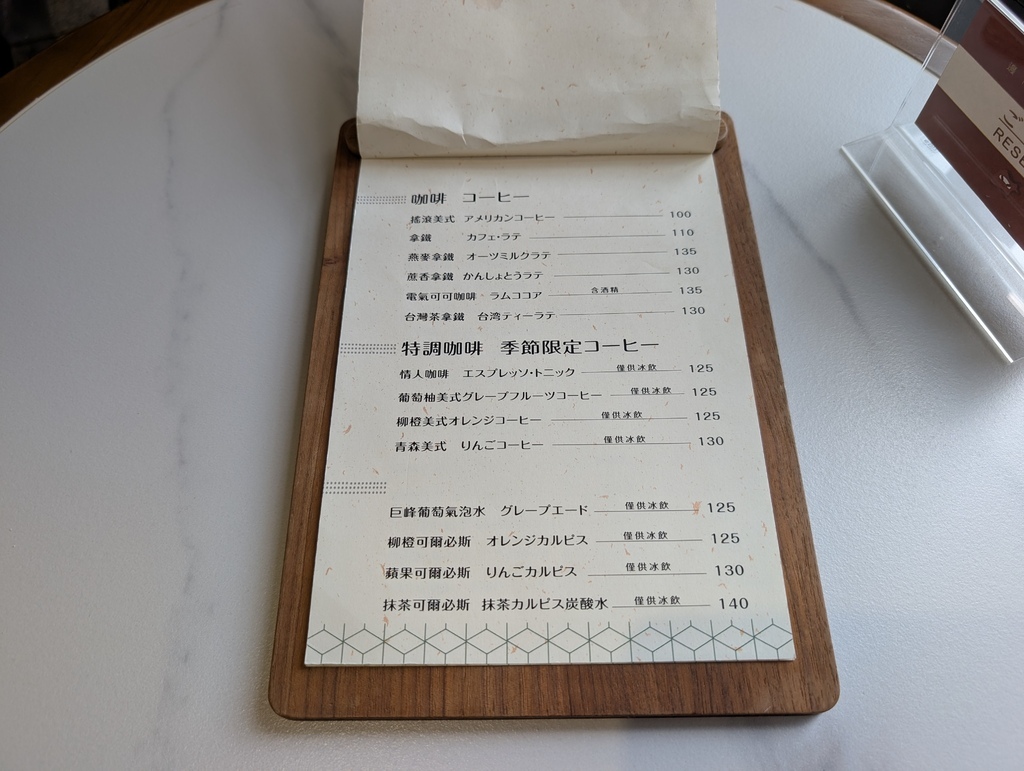 咖啡 コーヒー
搖滾美式 アメリカンコーヒー 100
拿鐵 カフェ・ラテ 110
燕麥拿鐵 オーツミルクラテ 135
蔗香拿鐵 かんしょとうラテ 130
電氣可可咖啡 ラムココア 含酒精 135
台灣茶拿鐵 台湾ティーラテ 130
特調咖啡 季節限定コーヒー
情人咖啡 エスプレッソ・トニック 僅供冰飲 125
葡萄柚美式グレープフルーツコーヒー 僅供冰飲 125
柳橙美式オレンジコーヒー 僅供冰飲 125
青森美式 りんごコーヒー 僅供冰飲 130
巨峰葡萄氣泡水 グレープエード 僅供冰飲 125
柳橙可爾必斯 オレンジカルピス 僅供冰飲 125
蘋果可爾必斯 りんごカルピス 僅供冰飲 130
抹茶可爾必斯 抹茶カルピス炭酸水 僅供冰飲 140